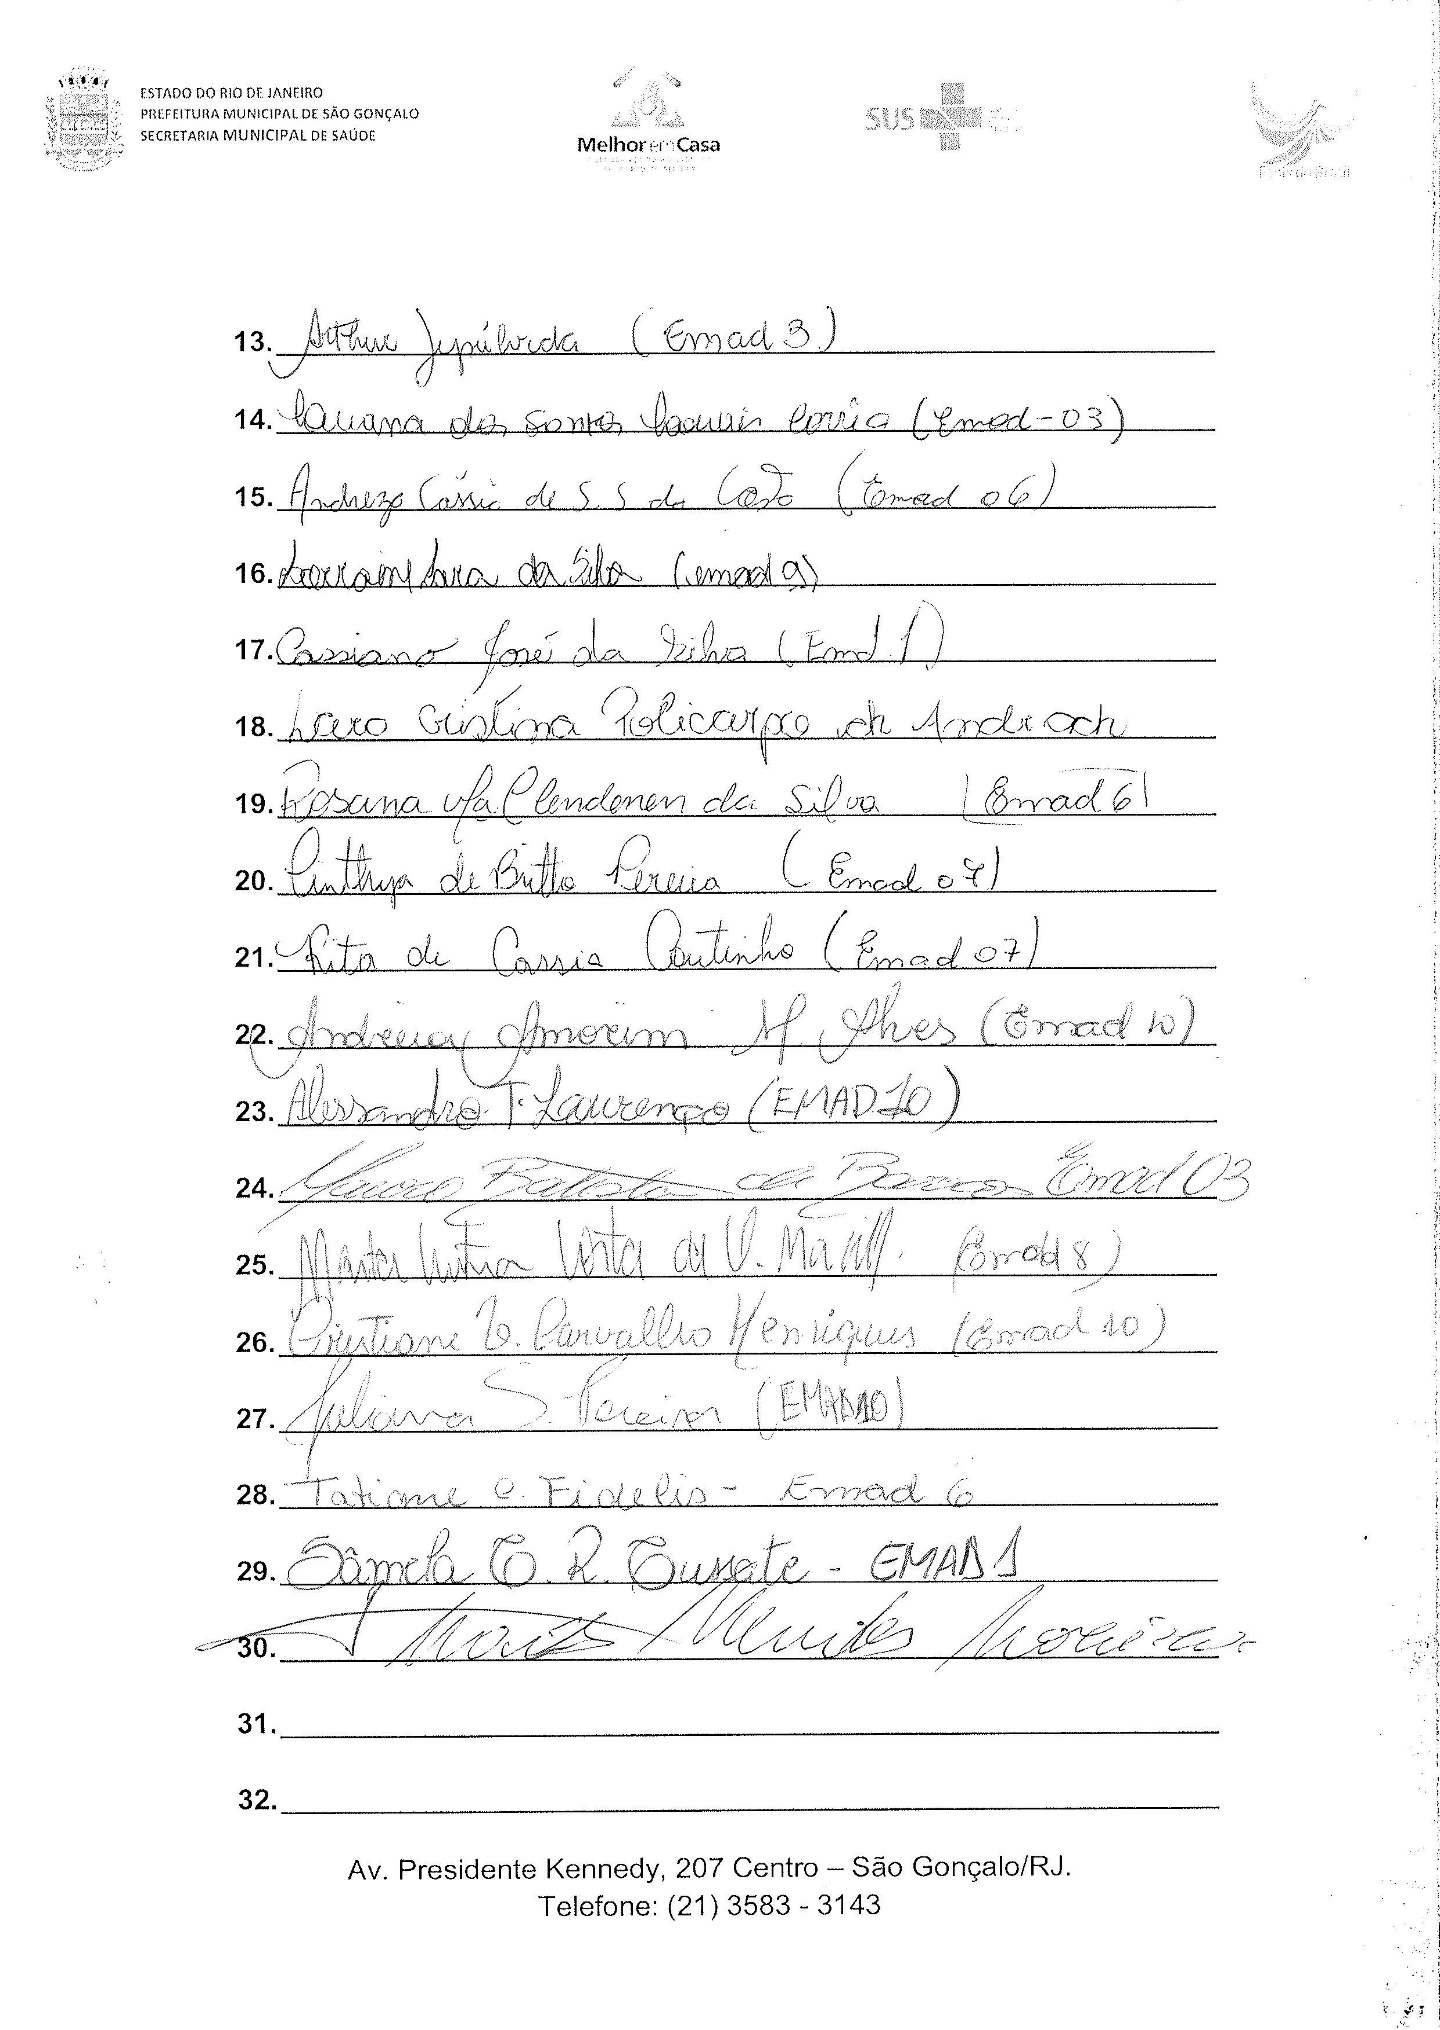 ESTADO DO RIO DE JANEIRO
PREFEITURA MUNICIPAL DE SÃO GONÇALO
SECRETARIA MUNICIPAL DE SAÚDE
Melhor em Casa
SUS
13. Arthur Sepúlveda (Emad 3)
14. dos Santos Corrêa (Emad-03)
15. Andreza Cássia de S. S. da (Emad 06)
16. da Silva (emad 9)
17. Cassiano José da Silva (Emd. 1)
18. Cristina Policarpo de Andrade
19. Rosana Clendenen da Silva (Emad 6)
20. Cinthya de Britto Pereira (Emad 07)
21. Rita de Cassia Coutinho (Emad 07)
22. Amorim M. Alves (Emad 10)
23. Alessandro T. Lourenço (EMAD 10)
24. Batista de Barros Emad 03
25. (Emad 8)
26. Cristiane C. Carvalho Henriques (Emad 10)
27. Juliana S. Pereira (EMAD10)
28. Tatiane C. Fidelis - Emad 6
29. Sâmela C. R. - EMAD 1
30. Mendes Moreira
31.
32.
Av. Presidente Kennedy, 207 Centro – São Gonçalo/RJ.
Telefone: (21) 3583 - 3143